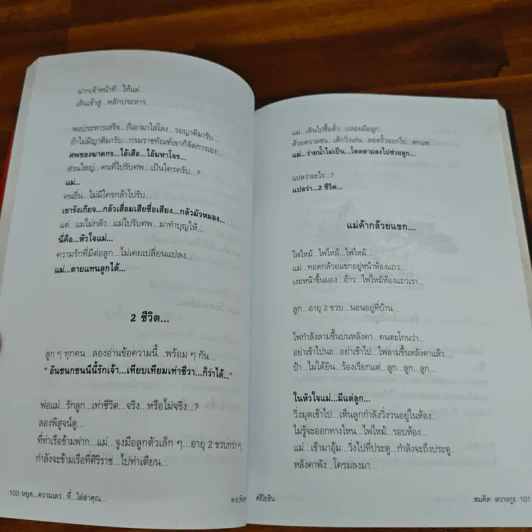 ฝากเจ้าหน้าที่...ให้แม่
เดินเข้าสู่...หลักประหาร...
พอประหารเสร็จ...ก็เอามาใส่โลง...รอญาติมารับ...
ถ้าไม่มีญาติมารับ...กรมราชทัณฑ์เขาก็จัดการเอง...
ศพของฆาตกร...ไอ้เสือ...ไอ้มหาโจร...
ส่วนใหญ่...คนที่ไปรับศพ...เป็นใครครับ...?
แม่...
คนอื่น...ไม่มีใครกล้าไปรับ...
เขารังเกียจ...กลัวเสื่อมเสียชื่อเสียง...กลัวมัวหมอง...
แต่...แม่ไม่กลัว...แม่ไปรับศพ...มาทำบุญให้...
นี่คือ...หัวใจแม่...
ความรักที่มีต่อลูก...ไม่เคยเปลี่ยนแปลง...
แม่...ตายแทนลูกได้...
2 ชีวิต...
ลูก ๆ ทุกคน...ลองอ่านข้อความนี้...พร้อม ๆ กัน...
" อันชนกชนนีนี้รักเจ้า...เทียบเทียมเท่าชีวา...ก็ว่าได้..."
พ่อแม่...รักลูก...เท่าชีวิต...จริง...หรือไม่จริง...?
ลองพิสูจน์ดู...
ที่ท่าเรือข้ามฟาก...แม่...จูงมือลูกตัวเล็ก ๆ...อายุ 2 ขวบกว่าๆ
กำลังจะข้ามเรือที่ศิริราช...ไปท่าเตียน...
100 หยุด...ความเลว...ที่...ไล่ล่าคุณ...
แม่...เดินไปซื้อตั๋ว...ปล่อยมือลูก...
ด้วยความซน...เด็กวิ่งเล่น...ลอดรั้วออกไป...ตกแพ...
แม่...ว่ายน้ำไม่เป็น...โดดตามลงไปช่วยลูก...
แปลว่าอะไร...?
แปลว่า...2 ชีวิต...
แม่ค้ากล้วยแขก...
ไฟไหม้...ไฟไหม้...ไฟไหม้...
แม่...ทอดกล้วยแขกอยู่หน้าห้องแถว...
เงยหน้าขึ้นมอง...อ้าว...ไฟไหม้ห้องแถวเรา...
ลูก...อายุ 2 ขวบ...นอนอยู่ที่บ้าน...
ไฟกำลังลามขึ้นบนหลังคา...คนตะโกนว่า...
อย่าเข้าไปนะ...อย่าเข้าไป...ไฟลามขึ้นหลังคาแล้ว...
ป้า...ไม่ได้ยิน...ร้องเรียกแต่...ลูก...ลูก...ลูก...
ในหัวใจแม่...มีแต่ลูก...
วิ่งมุดเข้าไป...เห็นลูกกำลังวิ่งวนอยู่ในห้อง...
ไม่รู้จะออกทางไหน...ไฟไหม้...รอบห้อง...
แม่...เข้ามาอุ้ม...วิ่งไปที่ประตู...กำลังจะถึงประตู...
หลังคาพัง...โครมลงมา...
101